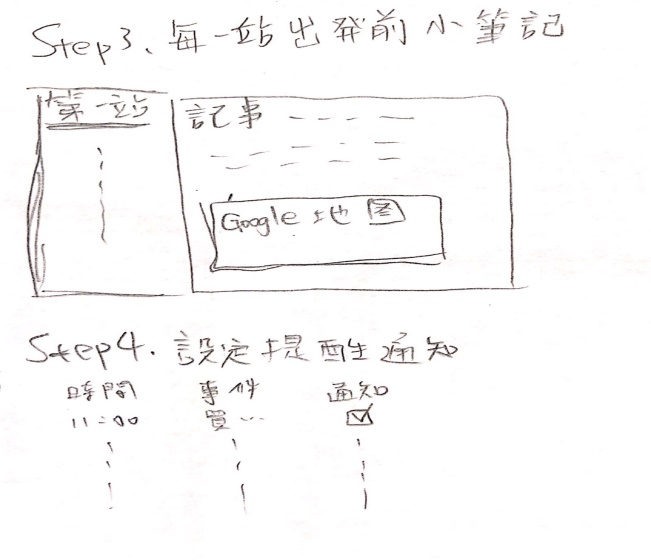 Step3、每一站出發前小筆記
第一站
記事
Google 地图
Step4. 設定提醒通知
時間 事件 通知
11:00 買… ☑